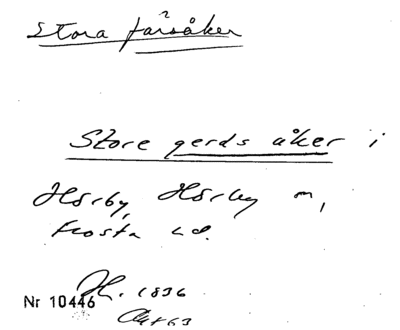 Stora fårsåker
Store gerds åker i
Hörby, Hörby
Frosta hd.
H. 1836
Nr 10446
Akt 63